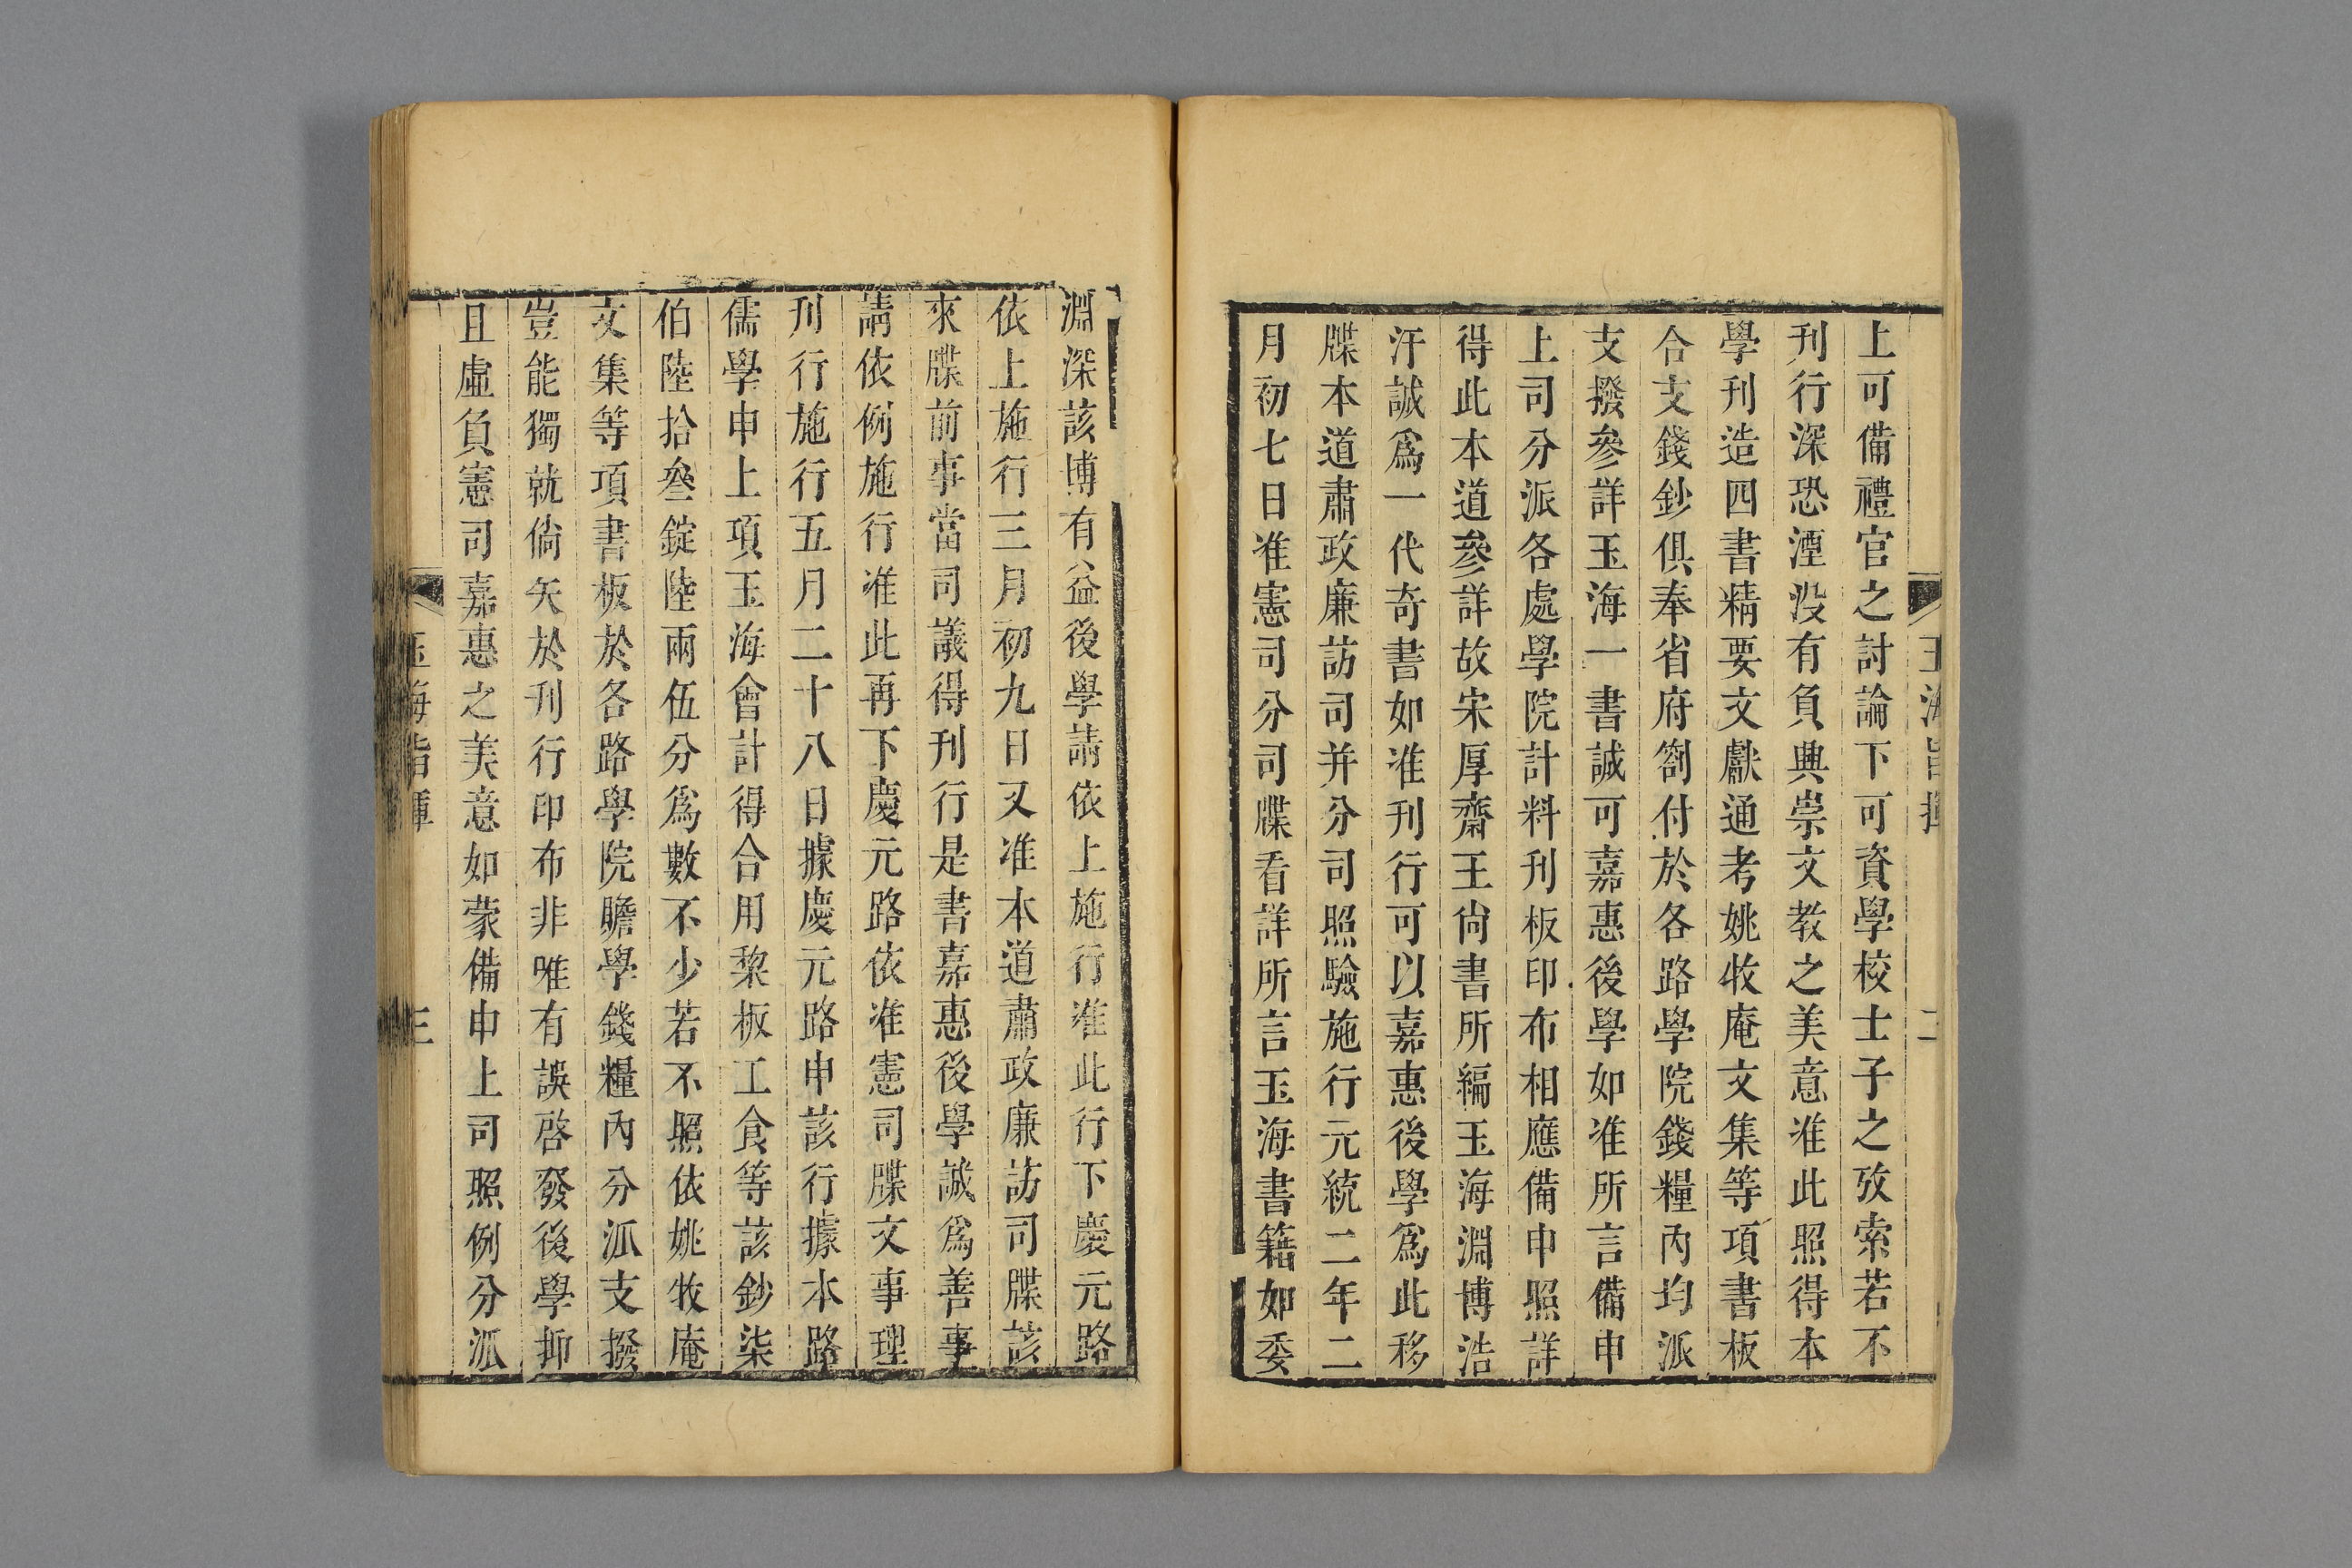 上可備禮官之討論下可資學校士子之攷索若不
刊行深恐湮没有負興崇文教之美意准此照得本
學刊造四書精要文獻通考姚牧庵文集等項書板
合支錢鈔俱奉省府劄付於各路學院錢糧內均派
支撥參詳玉海一書誠可嘉惠後學如准所言備申
上司分派各處學院計料刊板印布相應備申照詳
得此本道參詳故宋厚齋王尙書所編玉海淵博浩
汗誠爲一代奇書如准刊行可以嘉惠後學爲此移
牒本道肅政廉訪司并分司照驗施行元統二年二
月初七日准憲司分司牒看詳所言玉海書籍如委
淵深該博有益後學請依上施行准此行下慶元路
依上施行三月初九日又准本道肅政廉訪司牒該
來牒前事當司議得刊行是書嘉惠後學誠爲善事
請依例施行准此再下慶元路依准憲司牒文事理
刊行施行五月二十八日據慶元路申該行據本路
儒學申上項玉海會計得合用黎板工食等該鈔柒
伯陸拾叄錠陸兩伍分爲數不少若不照依姚牧庵
文集等項書板於各路學院贍學錢糧內分派支撥
豈能獨就倘失於刊行印布非唯有誤啓發後學抑
且虛負憲司嘉惠之美意如蒙備申上司照例分派
玉海指揮 三